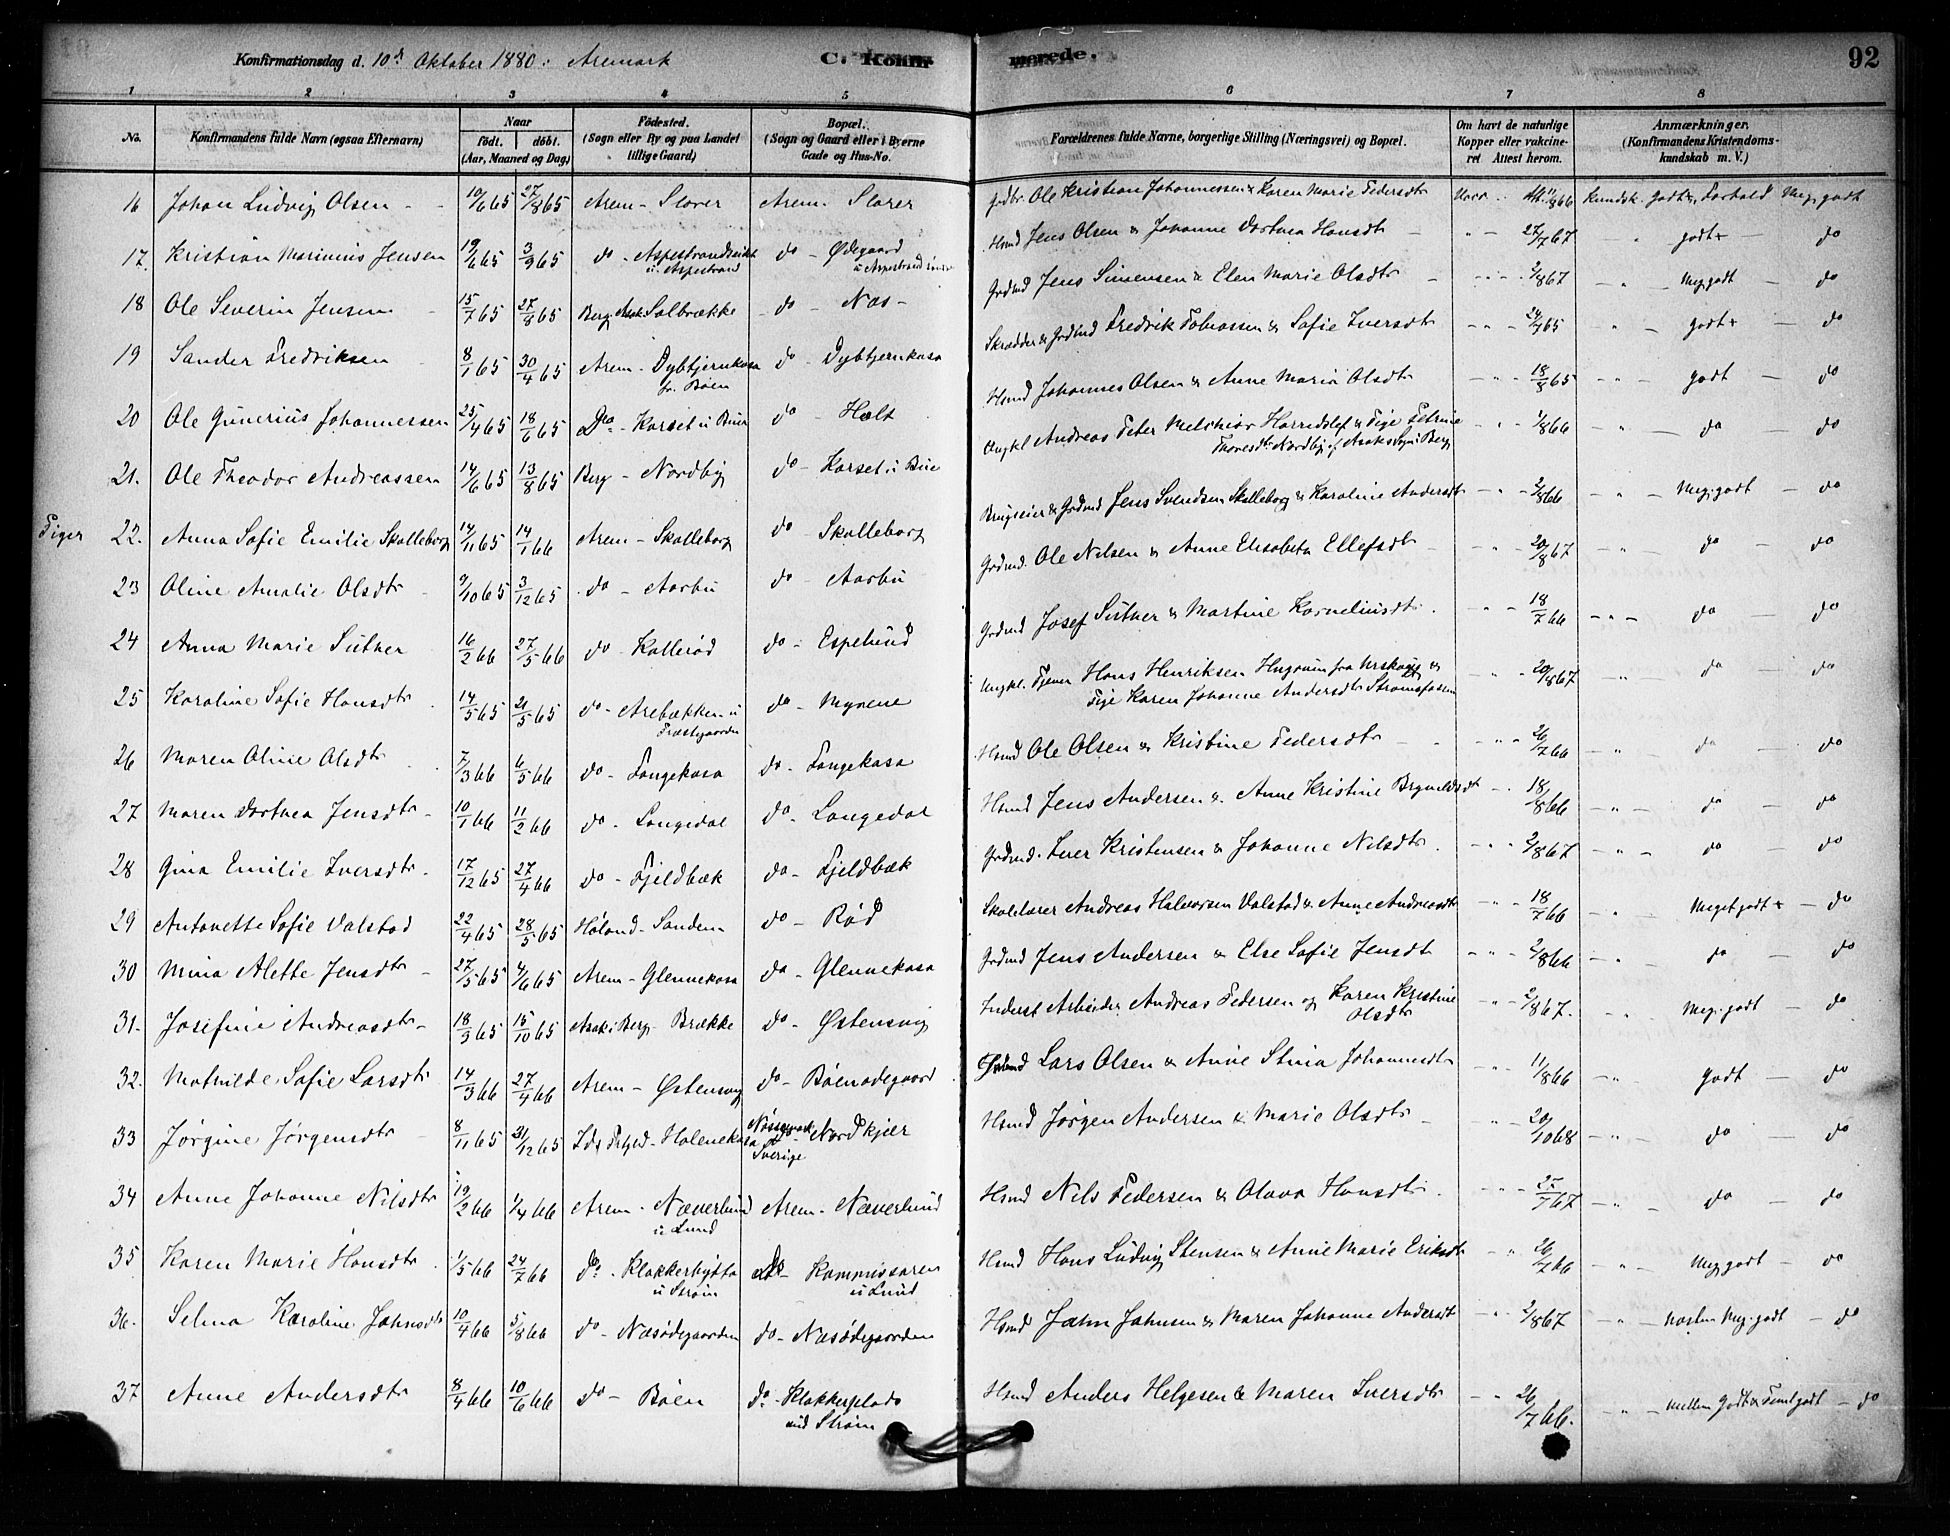 Konfirmationsdag d. 10de Oktober 1880. Aremark C. Konfirmerede. 92
1 2 3 4 5 6 7 8
No. Konfirmandens fulde Navn (ogsaa Efternavn) Naar født. døbt. (Aar, Maaned og Dag) Fødested. (Sogn eller By og paa Landet tillige Gaard) Bopæl. (Sogn og Gaard eller i Byerne Gade og Hus-No. Forældrenes fulde Navne, borgerlige Stilling (Næringsvei) og Bopæl. Om havt de naturlige Kopper eller vakcineret Attest herom. Anmærkninger. (Konfirmandens Kristendomskundskab m. V.)
16 Johan Ludvig Olsen 10/6 65 27/8 65 Arem - Slorer Arem. Slorer Grdbr. Ole Kristian Johannessen & Karen Marie Pedersdtr Vacc. Att. 11/8 66 Kundsk. godt+, Forhold Meg. godt
17. Kristian Marinius Jensen 19/6 65 3/9 65 do - Aspestrandseiet u. Aspestrand do - Ødegaard Hsmd Jens Olsen & Johanne Dortnea Hansdtr - " - 27/7 67 - " godt+ - do
18 Ole Severin Jensen 15/7 65 27/8 65 Berg Asak Solbrække do - Næs - Grdmd Jens Simensen & Elen Marie Olsdtr - " - 2/8 67 - " - Meg. godt - do
19 Sander Fredriksen 8/1 65 30/4 65 Arem - Dybtjernkasa do - Dybtjernkasa Skrædder & Grdmd Fredrik Tobiassen & Sofie Iversdtr - " - 24/7 65 " - godt+ - do
20 Ole Gunerius Johannessen 25/4 65 18/6 65 Do - Korset u Buer do - Holt Hsmd Johannes Olsen & Anne Maria Olsdtr - " - 18/8 65 - " - godt - do
21. Ole Theodor Andreassen 14/6 65 13/8 65 Berg - Nordby do - Korset u Bue Ungkl Andreas Peter Melchior Harredslef & Pige Petrine Thoresdtr Nordby af Asaks Sogn i Berg - " - 1/8 66 - " - do - do
Piger 22. Anna Sofie Emilie Skolleborg 14/11 65 14/1 66 Arem - Skolleborg do - Skolleborg Brugseier & Grdmd Jens Svendsen Skolleborg & Karoline Andersdtr - " - 2/8 66 " - Meg. godt - do
23 Oline Amalie Olsdtr 9/10 65 3/12 65 do - Aarbu do - Aarbu Grdmd. Ole Nilsen & Anne Elisabeta Ellefsdtr - " - 20/8 67 - " - do - do
24 Anna Marie Sutner 16/2 66 27/5 66 do - Kallerød do - Espelund Grdmd Josef Sutner & Martine Korneliusdtr. - " - 18/7 66 - " - do - do
25 Karoline Sofie Hansdtr 14/5 65 21/5 65 do - Arebækken u Præstegaarden do - Myrene Ungkl. Tjener Hans Henriksen fra Urskoug & Pige Karen Johanne Andersdtr Strømsfossen - " - 20/8 67 - " - do do
26 Maren Oline Olsdtr 7/3 66 6/5 66 do - Langekasa do - Langekasa Hsmd Ole Olsen & Kristine Pedersdtr - - " - 26/7 66 - " do - do
27 Maren Dortnea Jensdtr 10/1 66 11/2 66 do - Langedal do - Langedal Hsmd Jens Andersen & Anne Kristine Brynildsdtr - " 18/8 66 - " - do - do
28 Gina Emilie Iversdtr. 17/12 65 27/4 66 do - Fjeldbæk do - Fjeldbæk Grdmd. Iver Kristensen & Johanne Nilsdtr. - " - 2/8 67 - " - do - do
29 Antonette Sofie Valstad 22/4 65 28/5 65 Høland - Sanden do - Rød Skolelærer Andreas Halvorsen Valstad & Anne Andreasdtr - " - 18/7 66 - " Meget godt+ - do
30 Mina Alette Jensdtr - 27/5 65 4/6 65 Arem - Glennekasa do - Glennekasa Grdmd Jens Andersen & Else Sofie Jensdtr - " - 2/8 66 - " - do - do
31. Josefine Andreasdtr - 18/9 65 15/10 65 Asak i Berg - Brække do - Østensvig Inderst Arbeider Andreas Pedersen og Karen Kristine Olsdtr - " - 2/8 67. - " Meg. godt - do
32. Mathilde Sofie Larsdtr 14/3 66 27/4 66 Arem - Østensvig do - Bøenødegaard Lars Olsen & Anne Stina Johannesdtr - " - 11/8 66 - " - godt - do
33 Jørgine Jørgensdtr 8/11 65 31/12 65 Holenekasa Sverige Nordkjær Hsmd Jørgen Andersen & Marie Olsdtr - - " - 20/10 68 - " - do - do
34 Anne Johanne Nilsdtr 19/2 66 1/4 66 Arem - Næverlund u Lund Arem - Næverlund Hsmd Nils Pedersen & Olava Hansdtr. - " - 27/7 67 - " - do - do
35 Karen Marie Hansdtr. 1/5 66 24/7 66 do - Klakkerhytta u Strøm do - Kommissaren u Lund Hsmd Hans Ludvig Stensen & Anne Marie Eriksdtr - " 26/7 66 " Meg. godt - do
36. Selma Karoline Jahnsdtr 10/4 66 5/8 66 do - Næsødegaarden do - Næsødegaarden Hsmd Jahn Jahnsen & Maren Johanne Andersdtr - " - 2/8 67 " - Næsten Meg. godt - do
37. Anne Andersdtr 8/4 66 10/6 66 do - Bøen do - Klakkerplads und Strøm Hsmd Anders Helgesen & Maren Iversdtr - " 26/7 66. - " - Mellem godt & Temlgodt - do